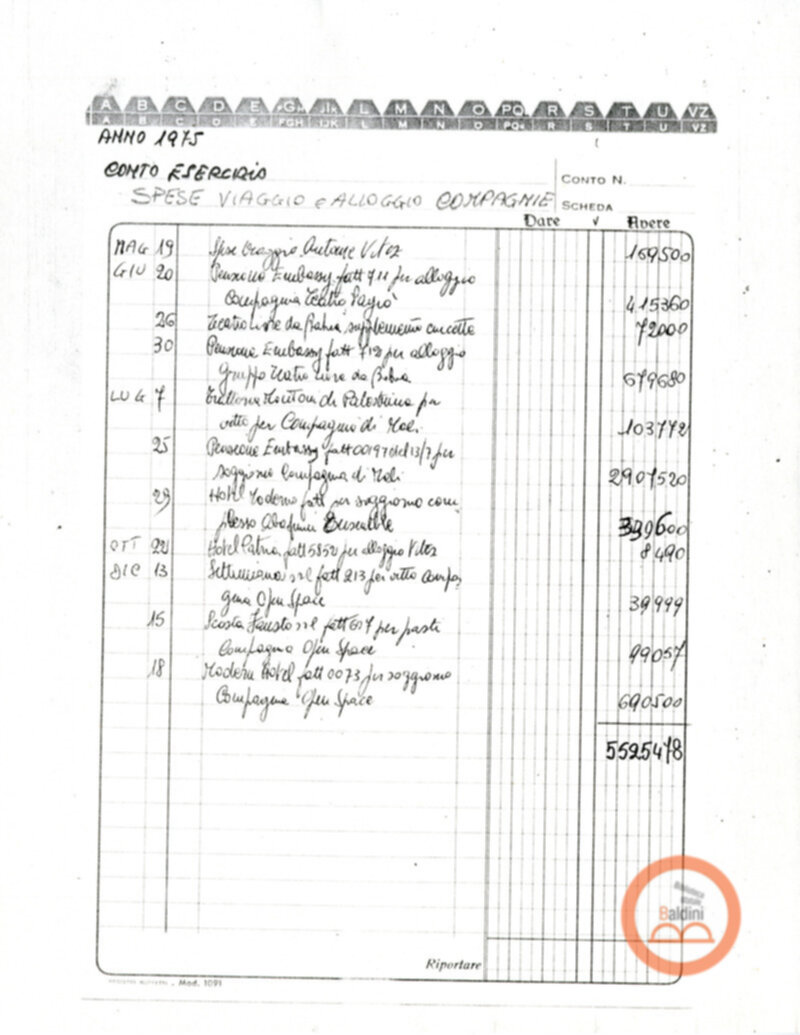 A B C D E ·G· ·I· L M N O PQ R S T U VZ
A B C D E FGH IJK L M N O PQ R S T U VZ
ANNO 1975
CONTO ESERCIZIO
CONTO N.
SPESE VIAGGIO e ALLOGGIO COMPAGNIE
SCHEDA
Dare √ Avere
MAG 19 Spese Viaggio Antoine Vitez 169500
GIU 20 Pensione Embassy fatt 711 per alloggio
Compagnia Teatro Payrò 415360
26 Teatro Livre da Bahia, supplemento cuccette 72000
30 Pensione Embassy fatt 712 per alloggio
Gruppo Teatro Livre da Bahia 679680
LUG 7 di Palestrina per
vitto per Compagnia di Mali 103772
25 Pensione Embassy fatt 00197 del 13/7 per
soggiorno Compagnia di Mali 2907520
29 Hotel Moderno fatt per soggiorno com
plesso Ensemble 339600
OTT 22 Hotel Patria fatt 5852 per alloggio Vitez 8490
DIC 13 Settimiana srl fatt 213 per vitto Compa
gnia Open Space 39999
15 Scosta Fausto srl fatt 607 per pasti
Compagnia Open Space 99057
18 Modern Hotel fatt 0073 per soggiorno
Compagnia Open Space 690500
5525478
Biblioteca
statale
Baldini
Riportare
Mod. 1091